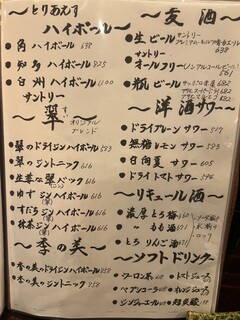 〜とりあえず
ハイボール〜
角ハイボール 638
知多ハイボール
白州ハイボール 1100
サントリー
〜翠〜
すい
オリジナル
ブレンド
翠のドライジンハイボール 583
翠のジンジニック 616
生姜な翠バック 616
ゆずジンハイボール 616
すだちジンハイボール 616
抹茶ジンハイボール 616
〜季の美〜
季の美のドライジンハイボール 858
季の美ジントニック 858
〜麦酒〜
生ビール サントリー
サントリー
オールフリー
瓶ビール
〜洋酒サワー〜
ドライプレーンサワー 517
無糖レモンサワー 583
日向夏サワー 605
ドライトマトサワー 594
〜リキュール酒〜
濃厚とろ梅
〃 もも酒
とろりんご酒
ソーダ割り
水割り
ロック
〜ソフトドリンク〜
ウーロン茶
トマトジュース
コーラ
オレンジジュース
ジンジャーエール